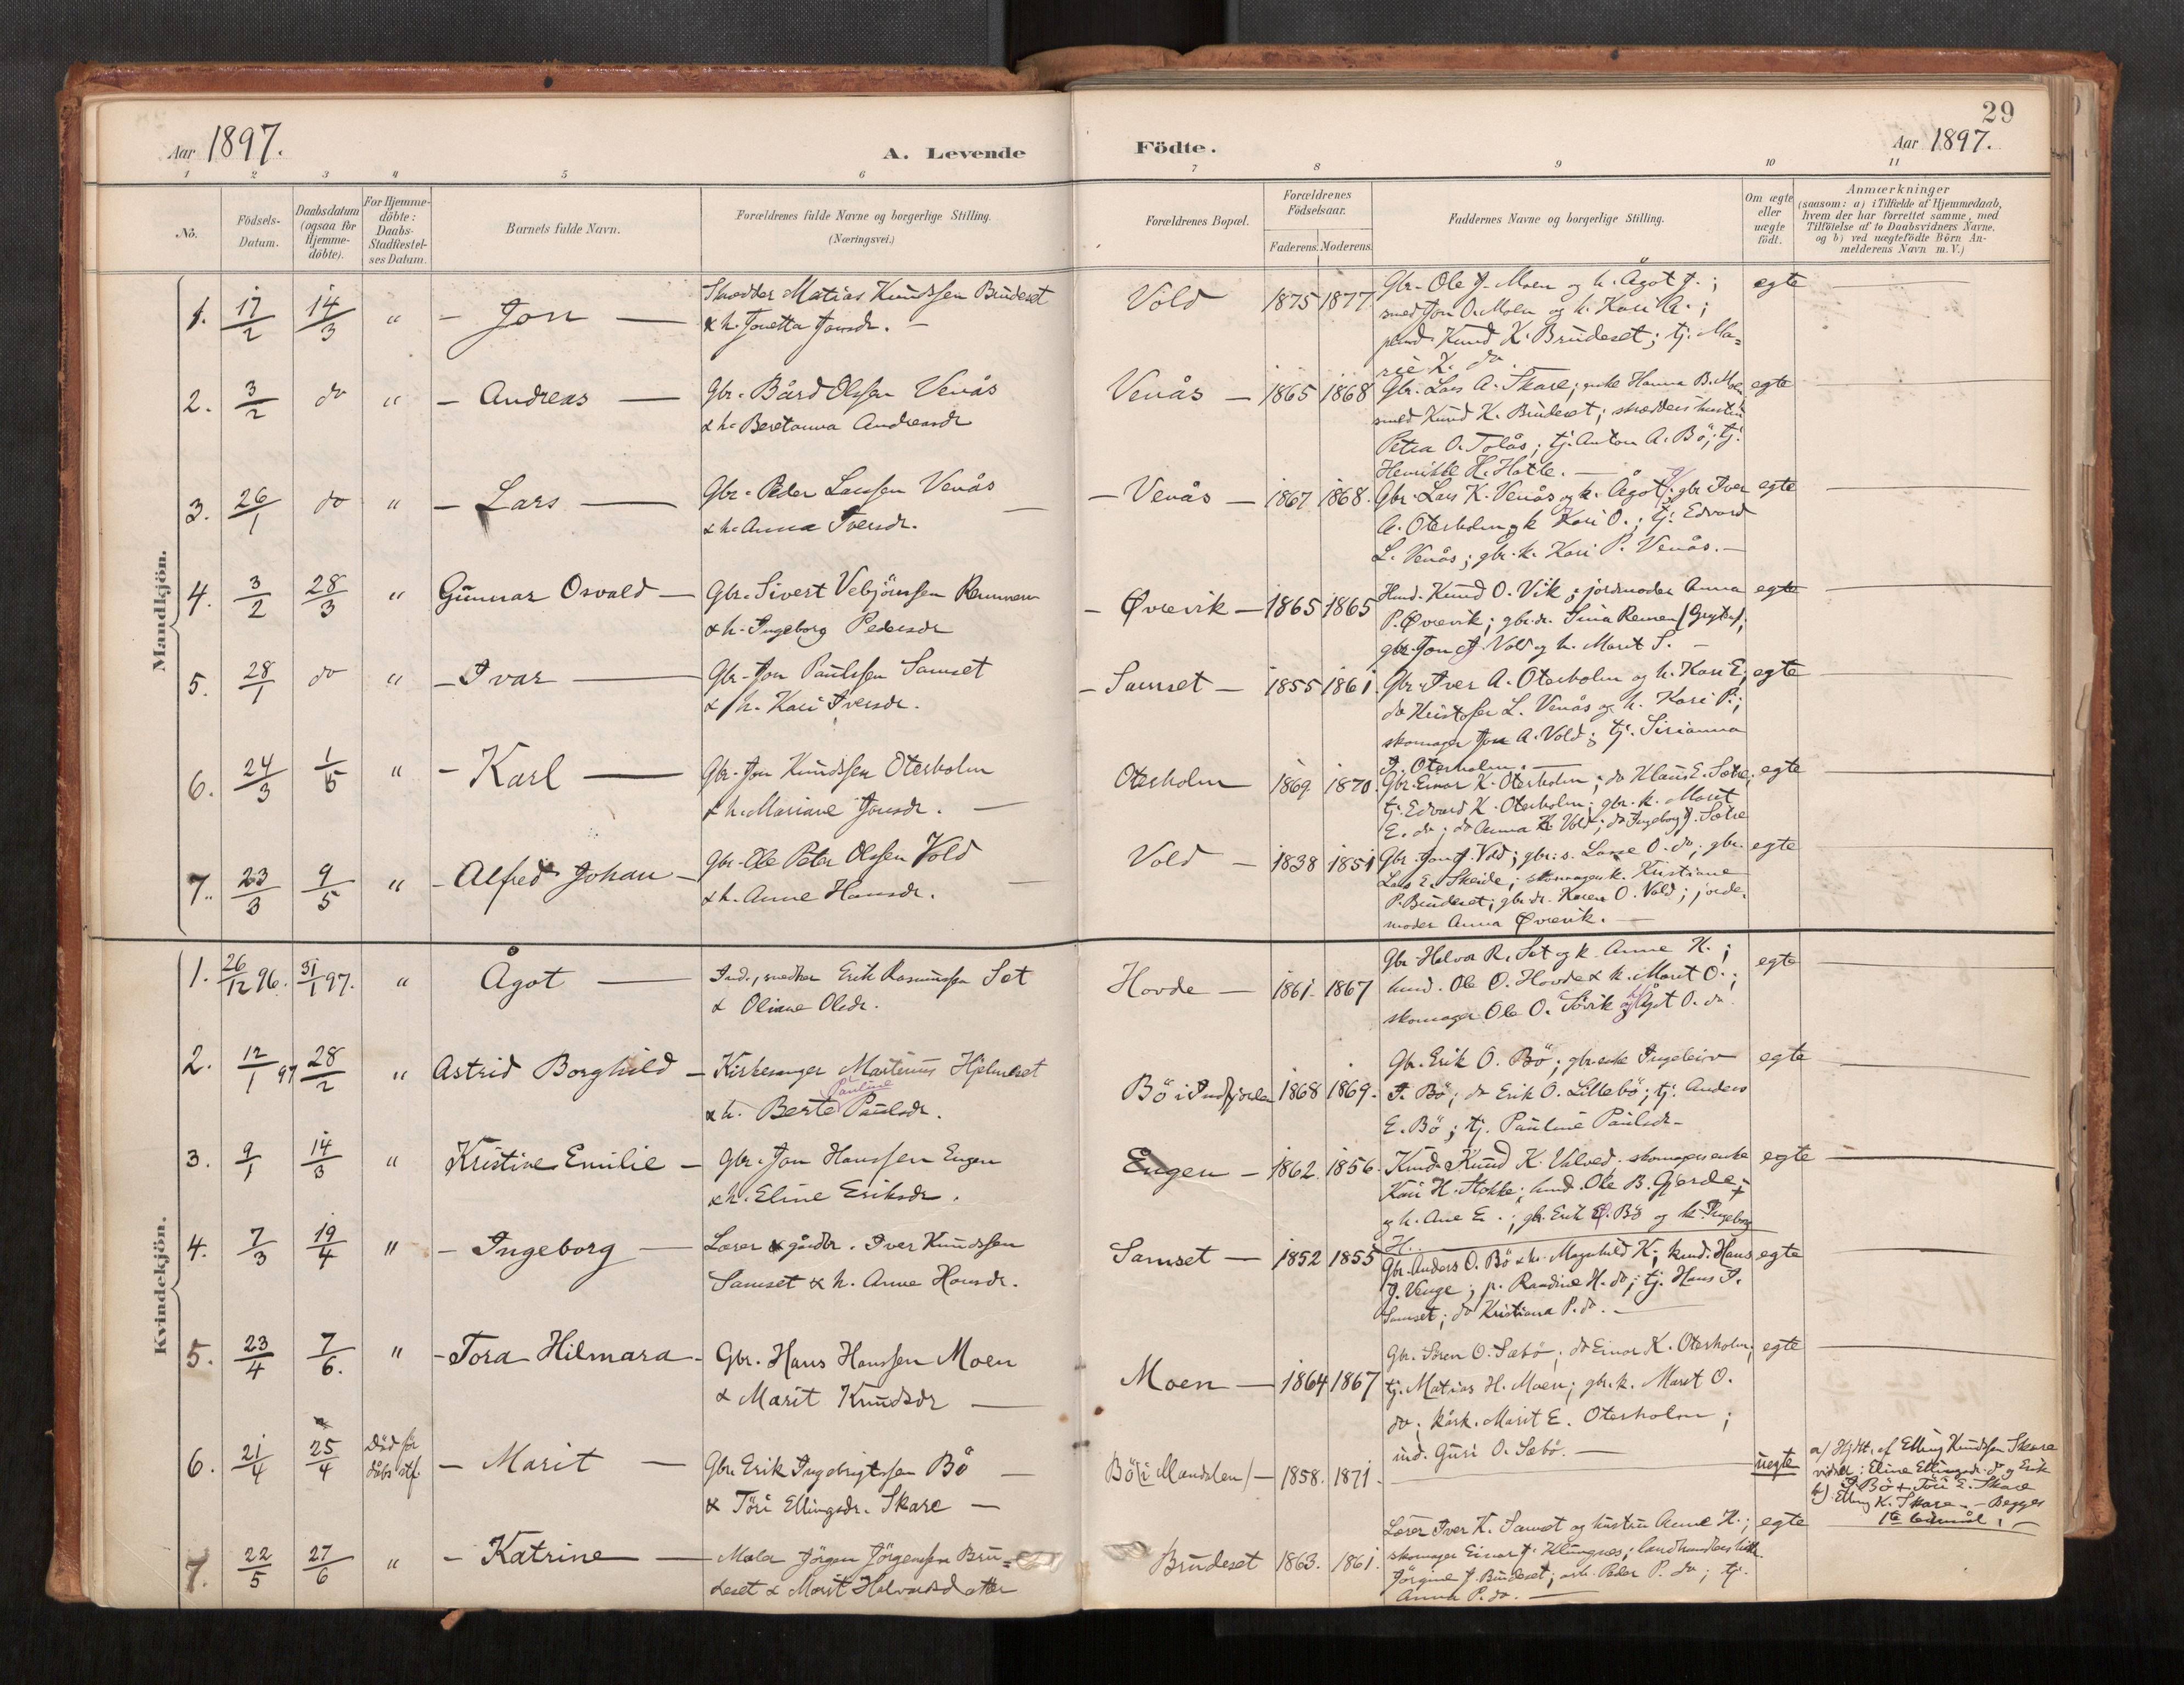 29
Aar 1897.
A. Levende
Födte.
Aar 1897.
1 2 3 4 5 6 7 8 9 10 11
No.
Födsels-
Datum.
Daabsdatum
(ogsaa for
Hjemme-
döbte).
For Hjemme-
döbte:
Daabs-
Stadfæstel-
ses Datum.
Barnets fulde Navn.
Forældrenes fulde Navne og borgerlige Stilling.
(Næringsvei.)
Forældrenes Bopæl.
Forældrenes
Födselsaar.
Faderens. Moderens.
Faddernes Navne og borgerlige Stilling.
Om ægte
eller
uægte
födt.
Anmærkninger
(saasom: a) i Tilfælde af Hjemmedaab,
hvem der har forrettet samme, med
Tilföielse af to Daabsvidners Navne,
og b) ved uægtefödte Börn An-
melderens Navn m. V.)
Mandkjön.
1. 17/2 14/3 " - Jon -
Skrædder Matias Knudssen Brudeset
& h. Jonetta Jonsdr. -
Vold 1875 1877
Gbr. Ole J. Moen og h. Ågot J.;
smed Jon O. Moen og h. Kari A.;
Knud K. Brudeset; tj. Ma-
rie K. do
egte
2. 3/2 do " - Andreas -
Gbr. Bård Olssen Venås
& h. Beretanna Andreasdr
Venås - 1865 1868
Gbr. Lars A. Skare; enke Hanna B. Moen
smed Knud K. Brudeset; skrædders hustru
Petra O. Tolås; tj. Anton A. Bö; tj.
Henrikke K. Hatle. -
egte
3. 26/1 do " - Lars -
Gbr. Peder Larssen Venås
& h. Anna Iversdr.
- Venås - 1867 1868.
Gbr. Lars K. Venås og k. Ågot; gbr Iver
A. Oterholm og k Kari O.; tj. Edvard
L. Venås; gbr. k. Kari P. Venås. -
egte
4. 3/2 28/3 " Gunnar Osvald -
Gbr. Sivert Vebjörnssen Remmem
& h. Ingeborg Pedersdr
- Øvrevik - 1865 1865
Knud O. Vik; jordmoder Anna
P. Øvrevik; gbr. dr. Sina Remen
gbr. Jon J. Vold og h. Marit S. -
egte
5. 28/1 do " - Ivar -
Gbr. Jon Paulssen Samset
& h. Kari Iversdr.
- Samset - 1855 1861.
Gbr. Iver A. Oterholm og h. Kari E;
do Kristofer L. Venås og h. Kari P.;
skomager Jon A. Vold; tj. Sirianna
J. Oterholm. -
egte
6. 24/3 1/5 " - Karl -
Gbr. Jon Knudssen Oterholm
& h. Mariane Jonsdr. -
Oterholm 1869 1870.
Gbr. Einar K. Oterholm; do Klaus E. Sætre;
tj. Edvard K. Oterholm; gbr. k. Marit
E. do; do Anna K. Vold; do Ingeborg J. Sætre
egte
7. 23/3 9/5 " - Alfred Johan -
Gbr. Ole Peter Olssen Vold
& h. Anne Hansdr. -
Vold - 1838 1851
Gbr. Jon J. Vold; gbr. s. Lasse O. do; gbr.
Lars E. Skeide; skomagerk. Kristiane
P. Brudeset; gbr. dr. Karen O. Vold; jorde-
moder Anna Øvrevik. -
egte
Kvindekjön.
1. 26/12 96. 31/1 97. " Ågot -
Ind., snedker Erik Rasmussen Set
& Oliane Olsdr.
Hovde - 1861. 1867
Gbr Halvor R. Set og k. Anne K.;
Ole O. Hovde & k. Marit O.;
skomager Ole O. Sörvik og Ågot O. do.
egte
2. 12/1 97 28/2 " Astrid Borghild -
Kirkesanger Martinus Hjelmeset
Pauline
& h. Berte Paulsdr.
Bö i Indfjorden 1868 1869.
Gbr. Erik O. Bö; gbr. enke Ingeleiv
I. Bö; do Erik O. Lillebö; tj. Anders
E. Bö; tj. Pauline Paulsdr.
egte
3. 9/1 14/3 " Kristine Emilie -
Gbr. Jon Hanssen Engen
& h. Eline Eriksdr.
Engen - 1862. 1856.
Knud K. Valved. skomagers enke
Kari H. Stokke; Ole B. Gjerde;
og h. Ane E.; gbr. Erik O. Bö og k. Ingeborg
H. -
egte
4. 7/3 19/4 " - Ingeborg -
Lærer & gårdbr. Iver Knudssen
Samset & h. Anne Hansdr.
Samset - 1852 1855
Gbr. Anders O. Bö & h. Magnhild K; Hans
J. Venge; p. Raadine H. do; tj. Hans I.
Samset; do Kristiana P. do. -
egte
5. 23/4 7/6. " - Tora Hilmara -
Gbr. Hans Hanssen Moen
& Marit Knudsdr -
Moen - 1864 1867
Gbr. Sören O. Sæbö; do Einar K. Oterholm;
tj. Matias H. Moen; gbr. k. Marit O.
do; Marit E. Oterholm;
ind. Guri O. Sæbö. -
egte
6. 21/4 25/4 Död för
dåbs stf. - Marit -
Gbr. Erik Ingebrigtssen Bö -
& Töri Ellingsdr. Skare -
Bö (i Mandalen) - 1858. 1871. -
uegte
a/ Hjdt. af Elling Knudssen Skare
vidner: Eline Ellingsdr. do og Erik
I. Bö & Töri E. Skare
b). Elling K. Skare. - Begges
1te leiermål. -
7. 22/5 27/6 " - Katrine -
Maler Jörgen Jörgenssen Bru-
deset & Marit Halvardsdatter
Brudeset 1863. 1861.
Lærer Iver K. Samset og hustru Anne H.;
skomager Einar J. Klungnes; landhandlers
Jörgine J. Brudeset; Peder P. do; tj.
Anna P. do. -
egte